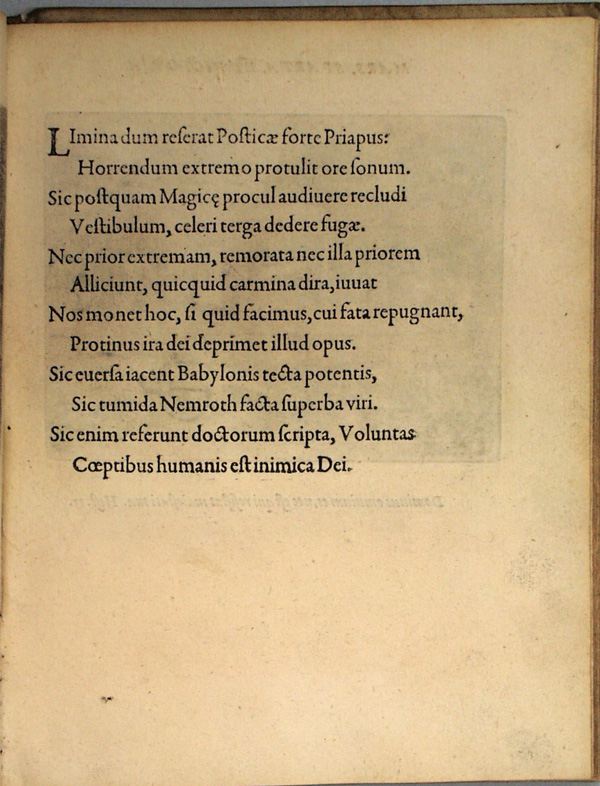 LImina dum reſerat Poſticæ forte Priapus:
Horrendum extremo protulit ore ſonum.
Sic poſtquam Magicę procul audiuere recludi
Veſtibulum, celeri terga dedere fugæ.
Nec prior extremam, remorata nec illa priorem
Alliciunt, quicquid carmina dira, iuuat
Nos monet hoc, ſi quid facimus, cui fata repugnant,
Protinus ira dei deprimet illud opus.
Sic euerſa iacent Babylonis tecta potentis,
Sic tumida Nemroth facta ſuperba viri.
Sic enim referunt doctorum ſcripta, Voluntas
Cœptibus humanis eſt inimica Dei.